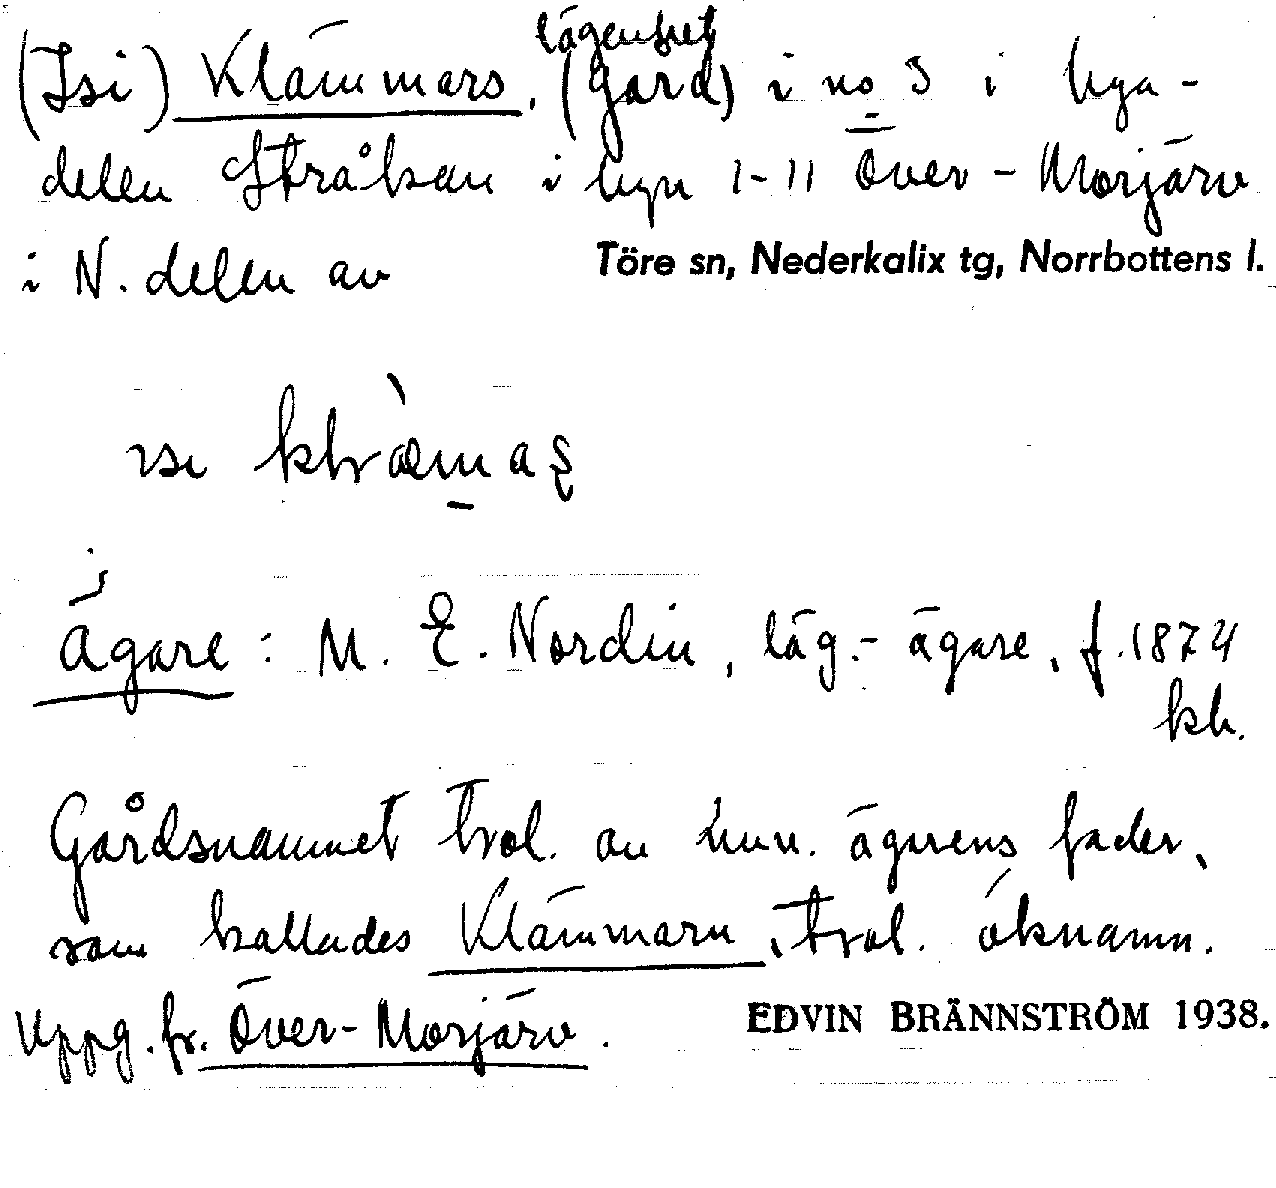 lägenhet
(Isi) Klämmars, (gård) i no 3 i bya-
delen Stråkan i byn 1-11 Över-Morjärv
i N. delen av Töre sn, Nederkalix tg, Norrbottens l.
Ägare: M. E. Nordin, läg.-ägare, f. 1874
kb.
Gårdsnamnet trol. av nuv. ägarens fader,
som kallades Klämmarn, trol. öknamn.
Uppg. fr. Över-Morjärv. EDVIN BRÄNNSTRÖM 1938.